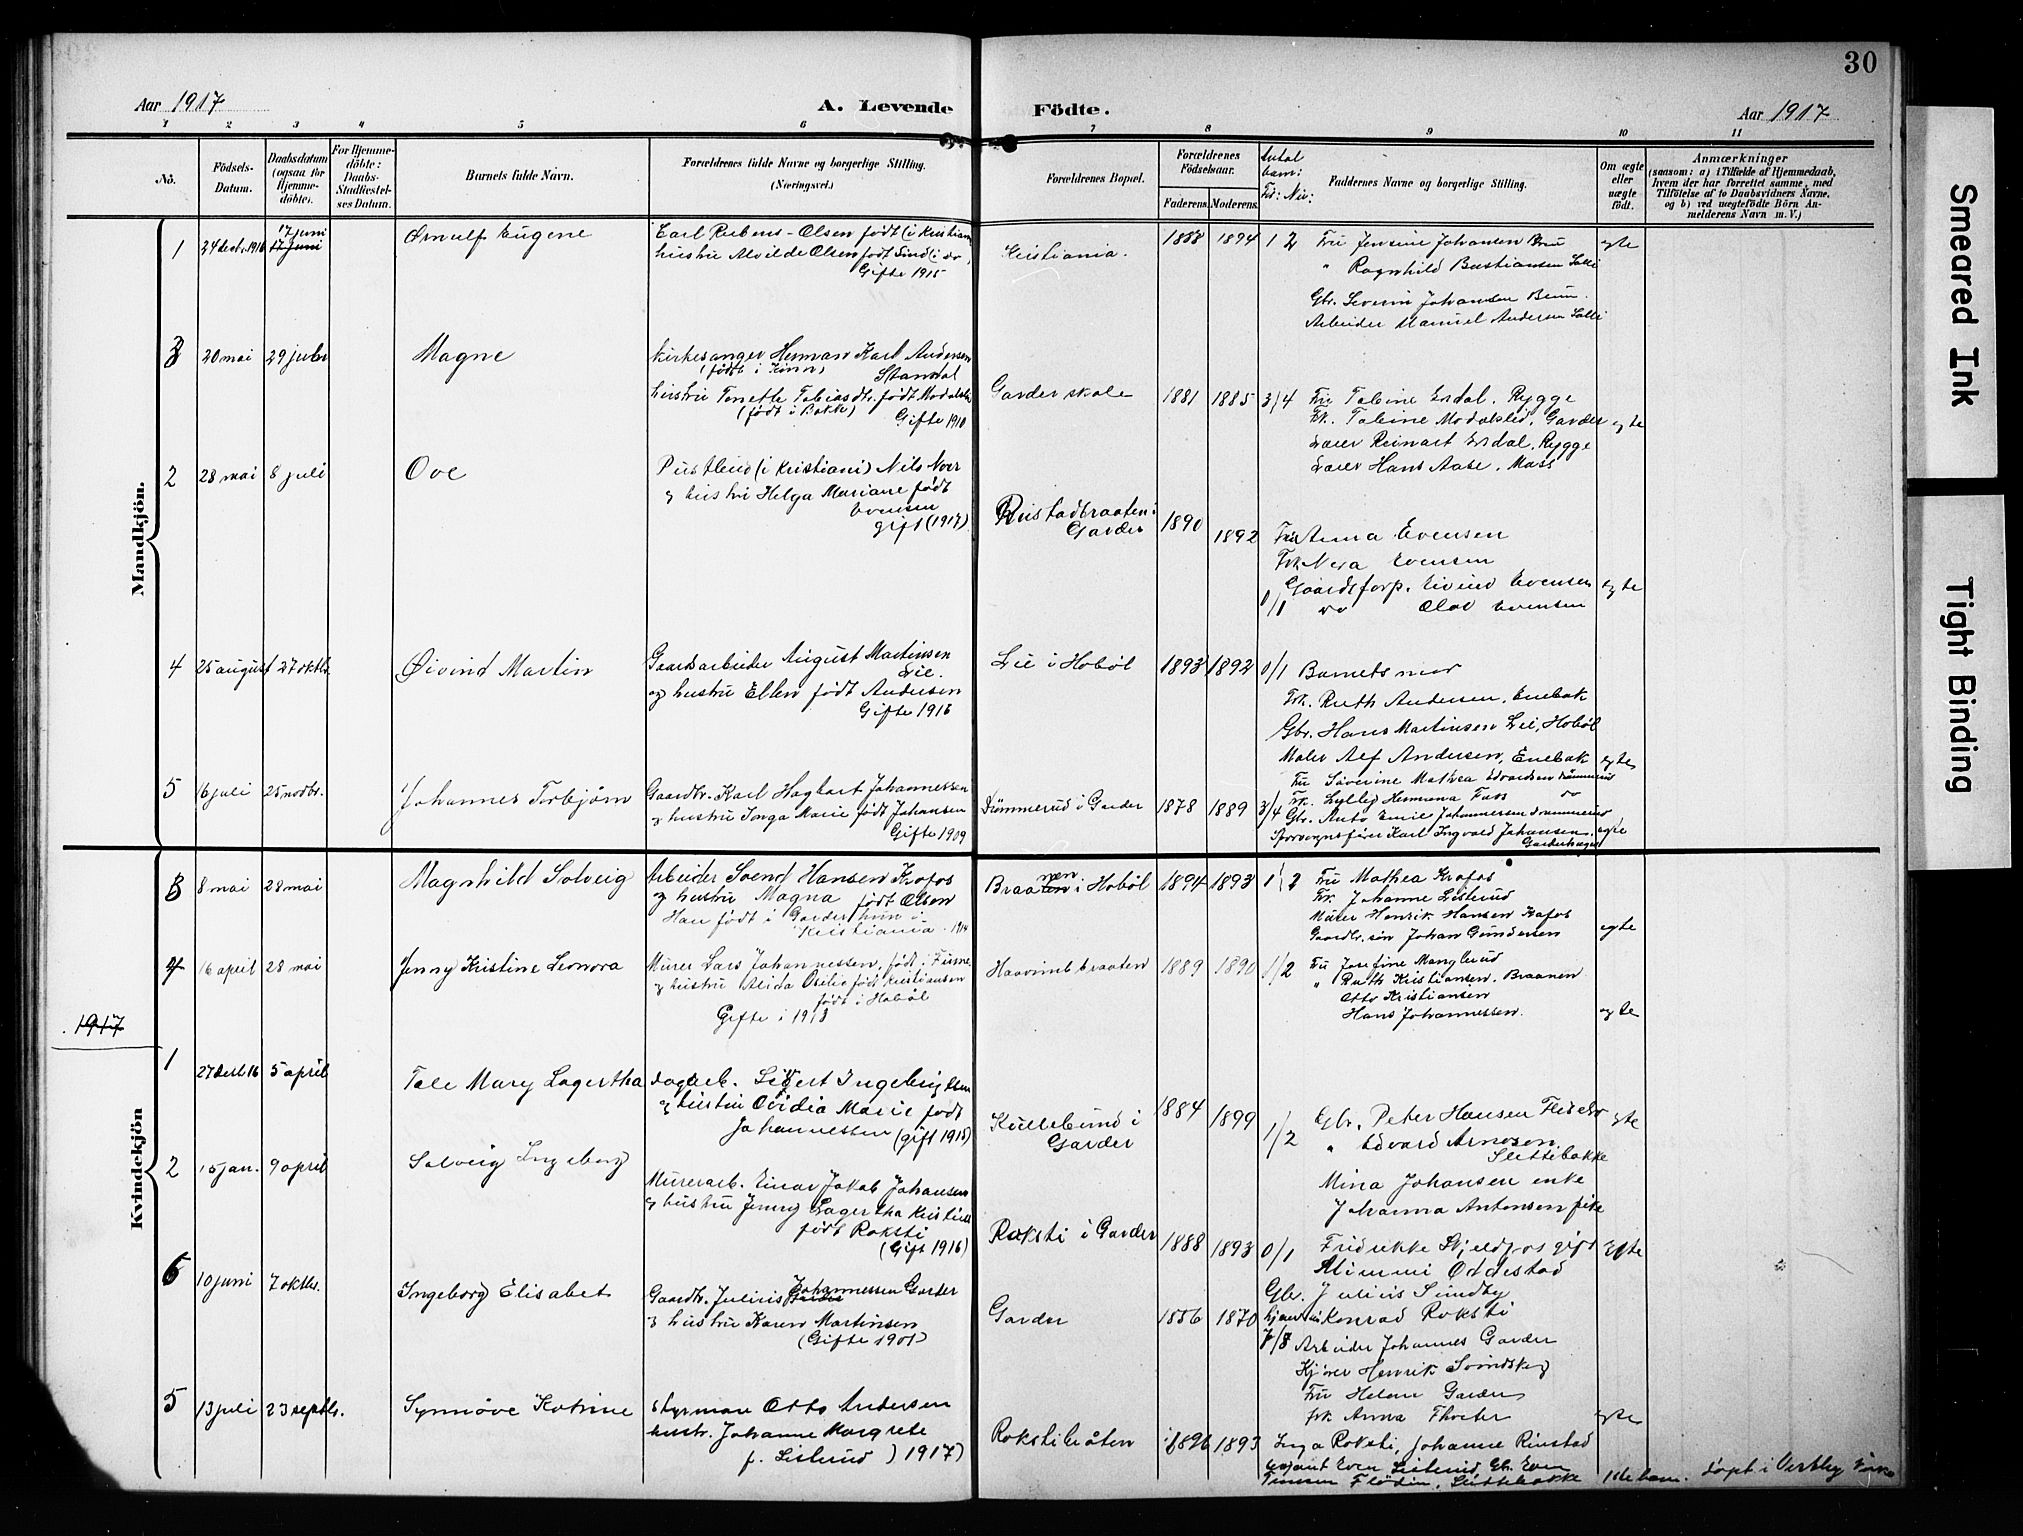 30
Aar 1917
A. Levende
Födte.
Aar 1917
1 2 3 4 5 6 7 8 9 10 11
No.
Födsels-
Datum.
Daabsdatum
(ogsaa for
Hjemme-
döbte).
For Hjemme-
döbte:
Daabs-
Stadfæstel-
ses Datum.
Barnets fulde Navn.
Forældrenes fulde Navne og borgerlige Stilling.
(Næringsvei.)
Forældrenes Bopæl.
Forældrenes
Födselsaar.
Faderens. Moderens.
Antal
barn:
Faddernes Navne og borgerlige Stilling.
Om ægte
eller
uægte
født.
Anmærkninger
(saasom: a) i Tilfælde af Hjemmedaab,
hvem der har forrettet samme, med
Tilföielse af to Daabsvidners Navne,
og b) ved uægtefödte Börn An-
melderens Navn m. V.)
Mandkjön.
1
24 decbr. 1916
17 juni
17 juni
Ørnulf Eugene
Carl Rubens-Olsen født (i Kristiania
hustru Alvilde Olsen født Lind (i do)
Gifte 1915
Kristiania.
1888 1894 1 2
Fru Jensine Johansen
" Ragnhild Bastiansen
Gbr. Severin Johansen
Arbeider Manuel Andersen
egte
3
20 mai 29 juli
Magne
Kirkesanger Herman Karl Andersen
(født i Kinn) Standal
hustru Tonette Tobiasdtr. født Modalsli
(født i Bakke)
Gifte 1910
Garder skole
1881 1885 3/4
Fru Tabine Ersdal, Rygge
Frk. Tabine Modalsli, Garder
Lærer Reinart Ersdal, Rygge
Lærer Hans Aase, Moss
egte
2
28 mai 8 juli
Ove
Postbud (i Kristiani) Nils Norr
og hustru Helga Mariane født
Evensen
gift (1917)
Ruistadbraaten i
Garder
1890 1892
Fru Anna Evensen
Frk Nera Evensen
0/1 Gaardsforp. Eivind Evensen
do Olav Evensen
egte
4
25 august 27 oktbr.
Øivind Martin
Gaardsarbeider August Martinsen
Lie.
og hustru Ellen født Andersen
Gifte 1916
Lie i Hobøl
1893 1892 0/1
Barnets mor
Frk. Ruth Andersen, Enebak
Gbr. Hans Martinsen Lie, Hobøl
Maler Alf Andersen, Enebak
egte
5
16 juli 25 novbr.
Johannes Torbjørn
Gaardbr. Karl Hagbart Johannessen
og hustru Inga Marie født Johansen
Gifte 1909
Drømmerud i Garder
1878 1889 3/4
Fru Severine Mathea Edvardsen Drømmerud
Frk. Lylly Hermana Foss do
Gbr. Anto Emil Johannessen Drømmerud
Sporvognsfører Karl Ingvald Johansen
Garderhagen
egte
Kvindekjön
3
8 mai 28 mai
Magnhild Solveig
Arbeider Svend Hansen Krafos
og hustru Magna født Olsen
Han født i Garder hun i
Kristiania 1914
Braanen i Hobøl
1894 1893 1/2
Fru Mathea Krafos
Frk Johanne Listerud
Murer Henrik Hansen Krafos
Gaardbr. søn Johan Gundersen
egte
4
16 april 28 mai
Jenny Kristine Leonora
Murer Lars Johannessen, født i
og hustru Alida Otilie født Kristiansen
født i Hobøl
Gifte i 1913
Haavimbraaten
1889 1890 1/2
Fru Josefine Manglerud
" Ruth Kristiansen, Braanen
Otto Kristiansen
Hans Johannessen.
egte
1917
1
27 decb 16 5 april
Tole Mary Lagertha
Dagarb. Sigvert Ingebrigtsen
og hustru Ovidia Marie født
Johannessen (gift 1915)
Kullebund i
Garder
1884 1899 1/2
Gbr. Peter Hansen
" Edvard Arnesen
Slettebakke
Mina Johansen enke
Johanna Antonsen pike
egte
2
15 jan. 9 april
Solveig Ingeborg
Murerarb. Einar Jakob Johansen
og hustru Jenny Lagertha Kristine
født Roksti
(Gift 1916)
Roksti i Garder
1888 1893 0/1
Fridrikke Skjeldfos gift
Mimmi Oddestad
Gbr. Julius Sundby
Konrad Roksti
Egte
6
10 juni 7 oktbr.
Ingeborg Elisabet
Gaardbr. Julius Johannessen Garder
og hustru Karen Martinsen
(Gifte 1901)
Garder
1856 1870 7/8
Arbeider Johannes Garder
Kjører Henrik Svindskog
Fru Helene Garder
Frk Anna Thoeter
egte
5
13 juli 23 septbr.
Synnøve Katrine
Styrman Otto Andersen
hustr. Johanne Margrete
f. Listerud ) 1917)
Rokstibråten
1896 1893
Inga Roksti, Johanne Rinstad
Even Listerud Gbr. Even
Slettebakke
1ste barn. Døpt i Vestby kirke
Smeared Ink
Tight Binding